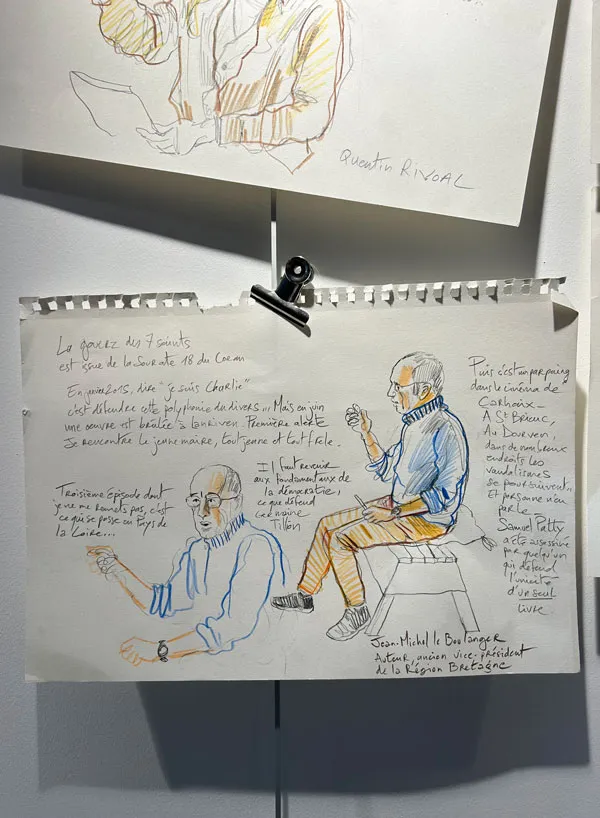 Quentin RIVOAL
La gwerz des 7 saints
est issue de la Sourate 18 du Coran
En janvier 2015, dire "je suis Charlie"
c'est défendre cette polyphonie du divers... Mais en juin
une oeuvre est brûlée à Lanriven. Première alerte
Je rencontre le jeune maire, tout jeune et tout frêle.
Troisième épisode dont
je ne me remets pas, c'est
ce qui se passe en Pays de
la Loire...
Il faut revenir
aux fondamentaux de
la démocratie,
ce que défend
Germaine
Tillon
Puis c'est un parpaing
dans le cinéma de
Carhaix
A St Brieuc,
Au Dourven,
dans de nombreux
endroits les
vandalismes
se poursuivent..
Et personne n'en
parle
Samuel Patty
a été assassiné
par quelqu'un
qui défend
l'unicité
d'un seul
livre.
Jean-Michel le Boulanger
Auteur, ancien vice-président
de la Région Bretagne